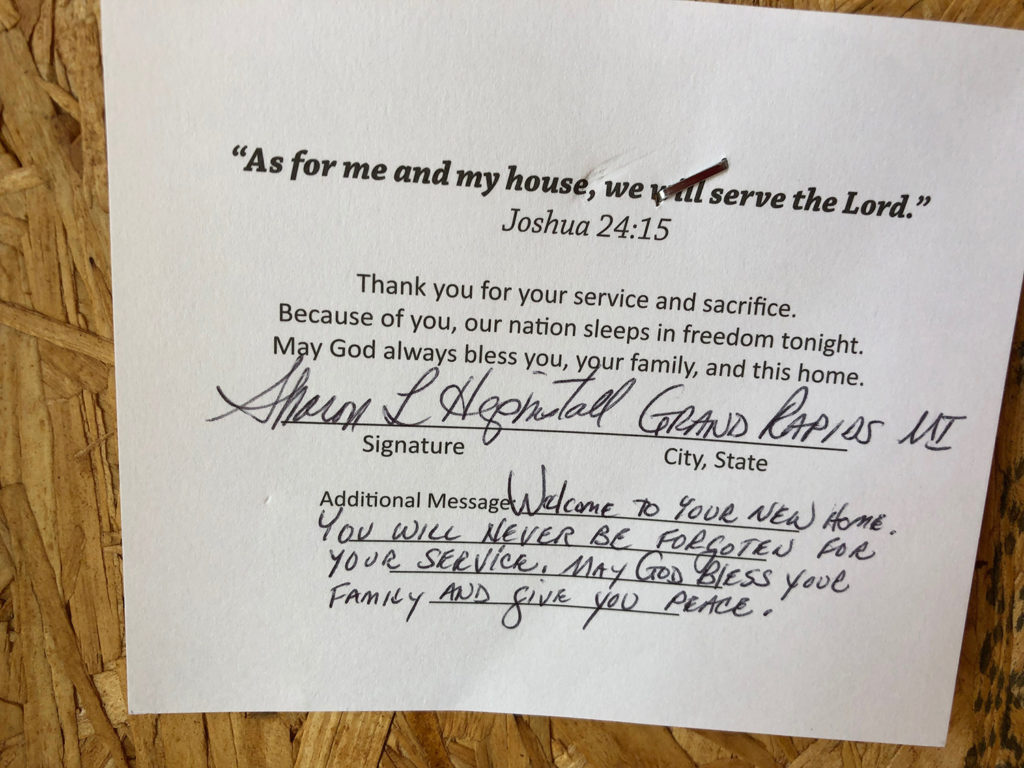 “As for me and my house, we will serve the Lord.”
Joshua 24:15
Thank you for your service and sacrifice.
Because of you, our nation sleeps in freedom tonight.
May God always bless you, your family, and this home.
Sharon L Hepinstall GRAND RAPIDS MI
Signature City, State
Additional Message Welcome to YOUR NEW HOME.
YOU WILL NEVER BE FORGOTEN FOR
YOUR SERVICE. MAY GOD BLESS YOUR
FAMILY AND GIVE YOU PEACE.